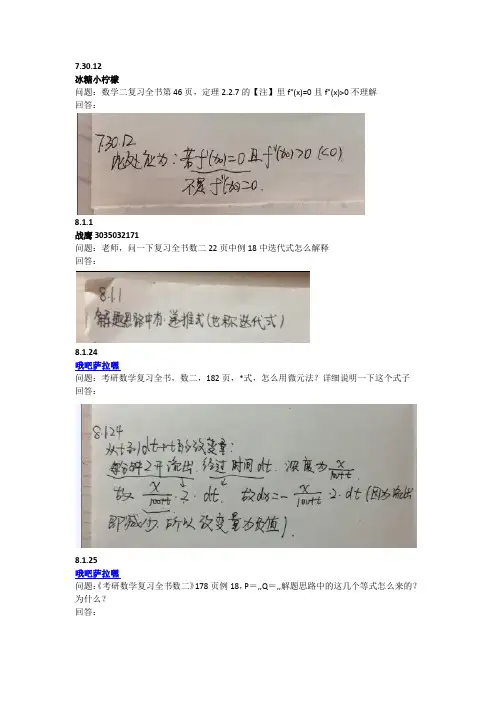 7.30.12
冰糖小柠檬
问题：数学二复习全书第46页，定理2.2.7的【注】里f"(x)=0且f"(x)>0不理解
回答：
7.30.12
此处应为：若f'(x₀)=0且f"(x₀)>0 (<0)
不是f"(x₀)=0.
8.1.1
战鹰3035032171
问题：老师，问一下复习全书数二22页中例18中迭代式怎么解释
回答：
8.1.1
解题思路中有递推式(也称迭代式)
8.1.24
哦吧萨拉嘿
问题：考研数学复习全书，数二，182页，*式，怎么用微元法？详细说明一下这个式子
回答：
8.1.24
从t到dt+t的改变量：
每分钟2升流出，经过时间dt，浓度为x/(100+t)
故 x/(100+t)·2·dt, 故dx=-x/(100+t)·2·dt(因为流出
即减少，所以改变量为负值).
8.1.25
哦吧萨拉嘿
问题：《考研数学复习全书数二》178页例18，P＝,,Q＝,,解题思路中的这几个等式怎么来的？
为什么？
回答：